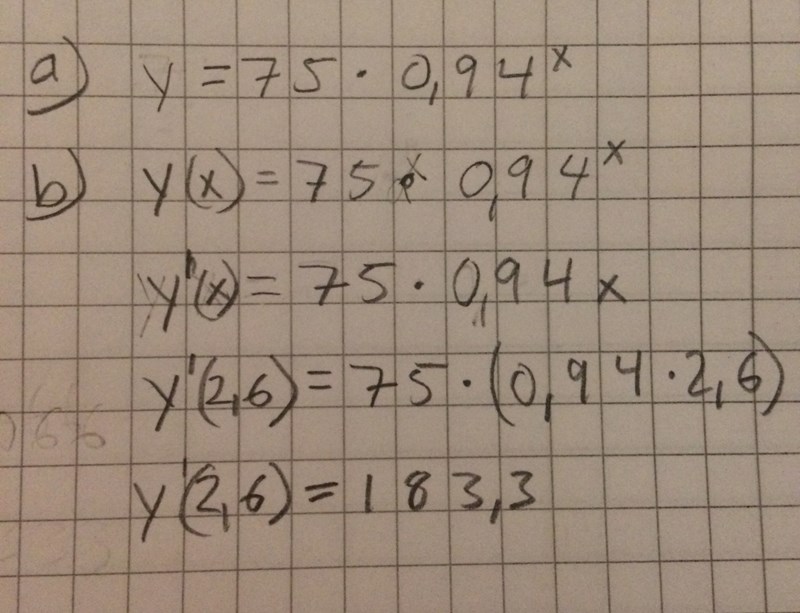 a) y = 75 · 0,94^x
b) y(x) = 75 · 0,94^x
y'(x) = 75 · 0,94x
y'(2,6) = 75 · (0,94 · 2,6)
y'(2,6) = 183,3